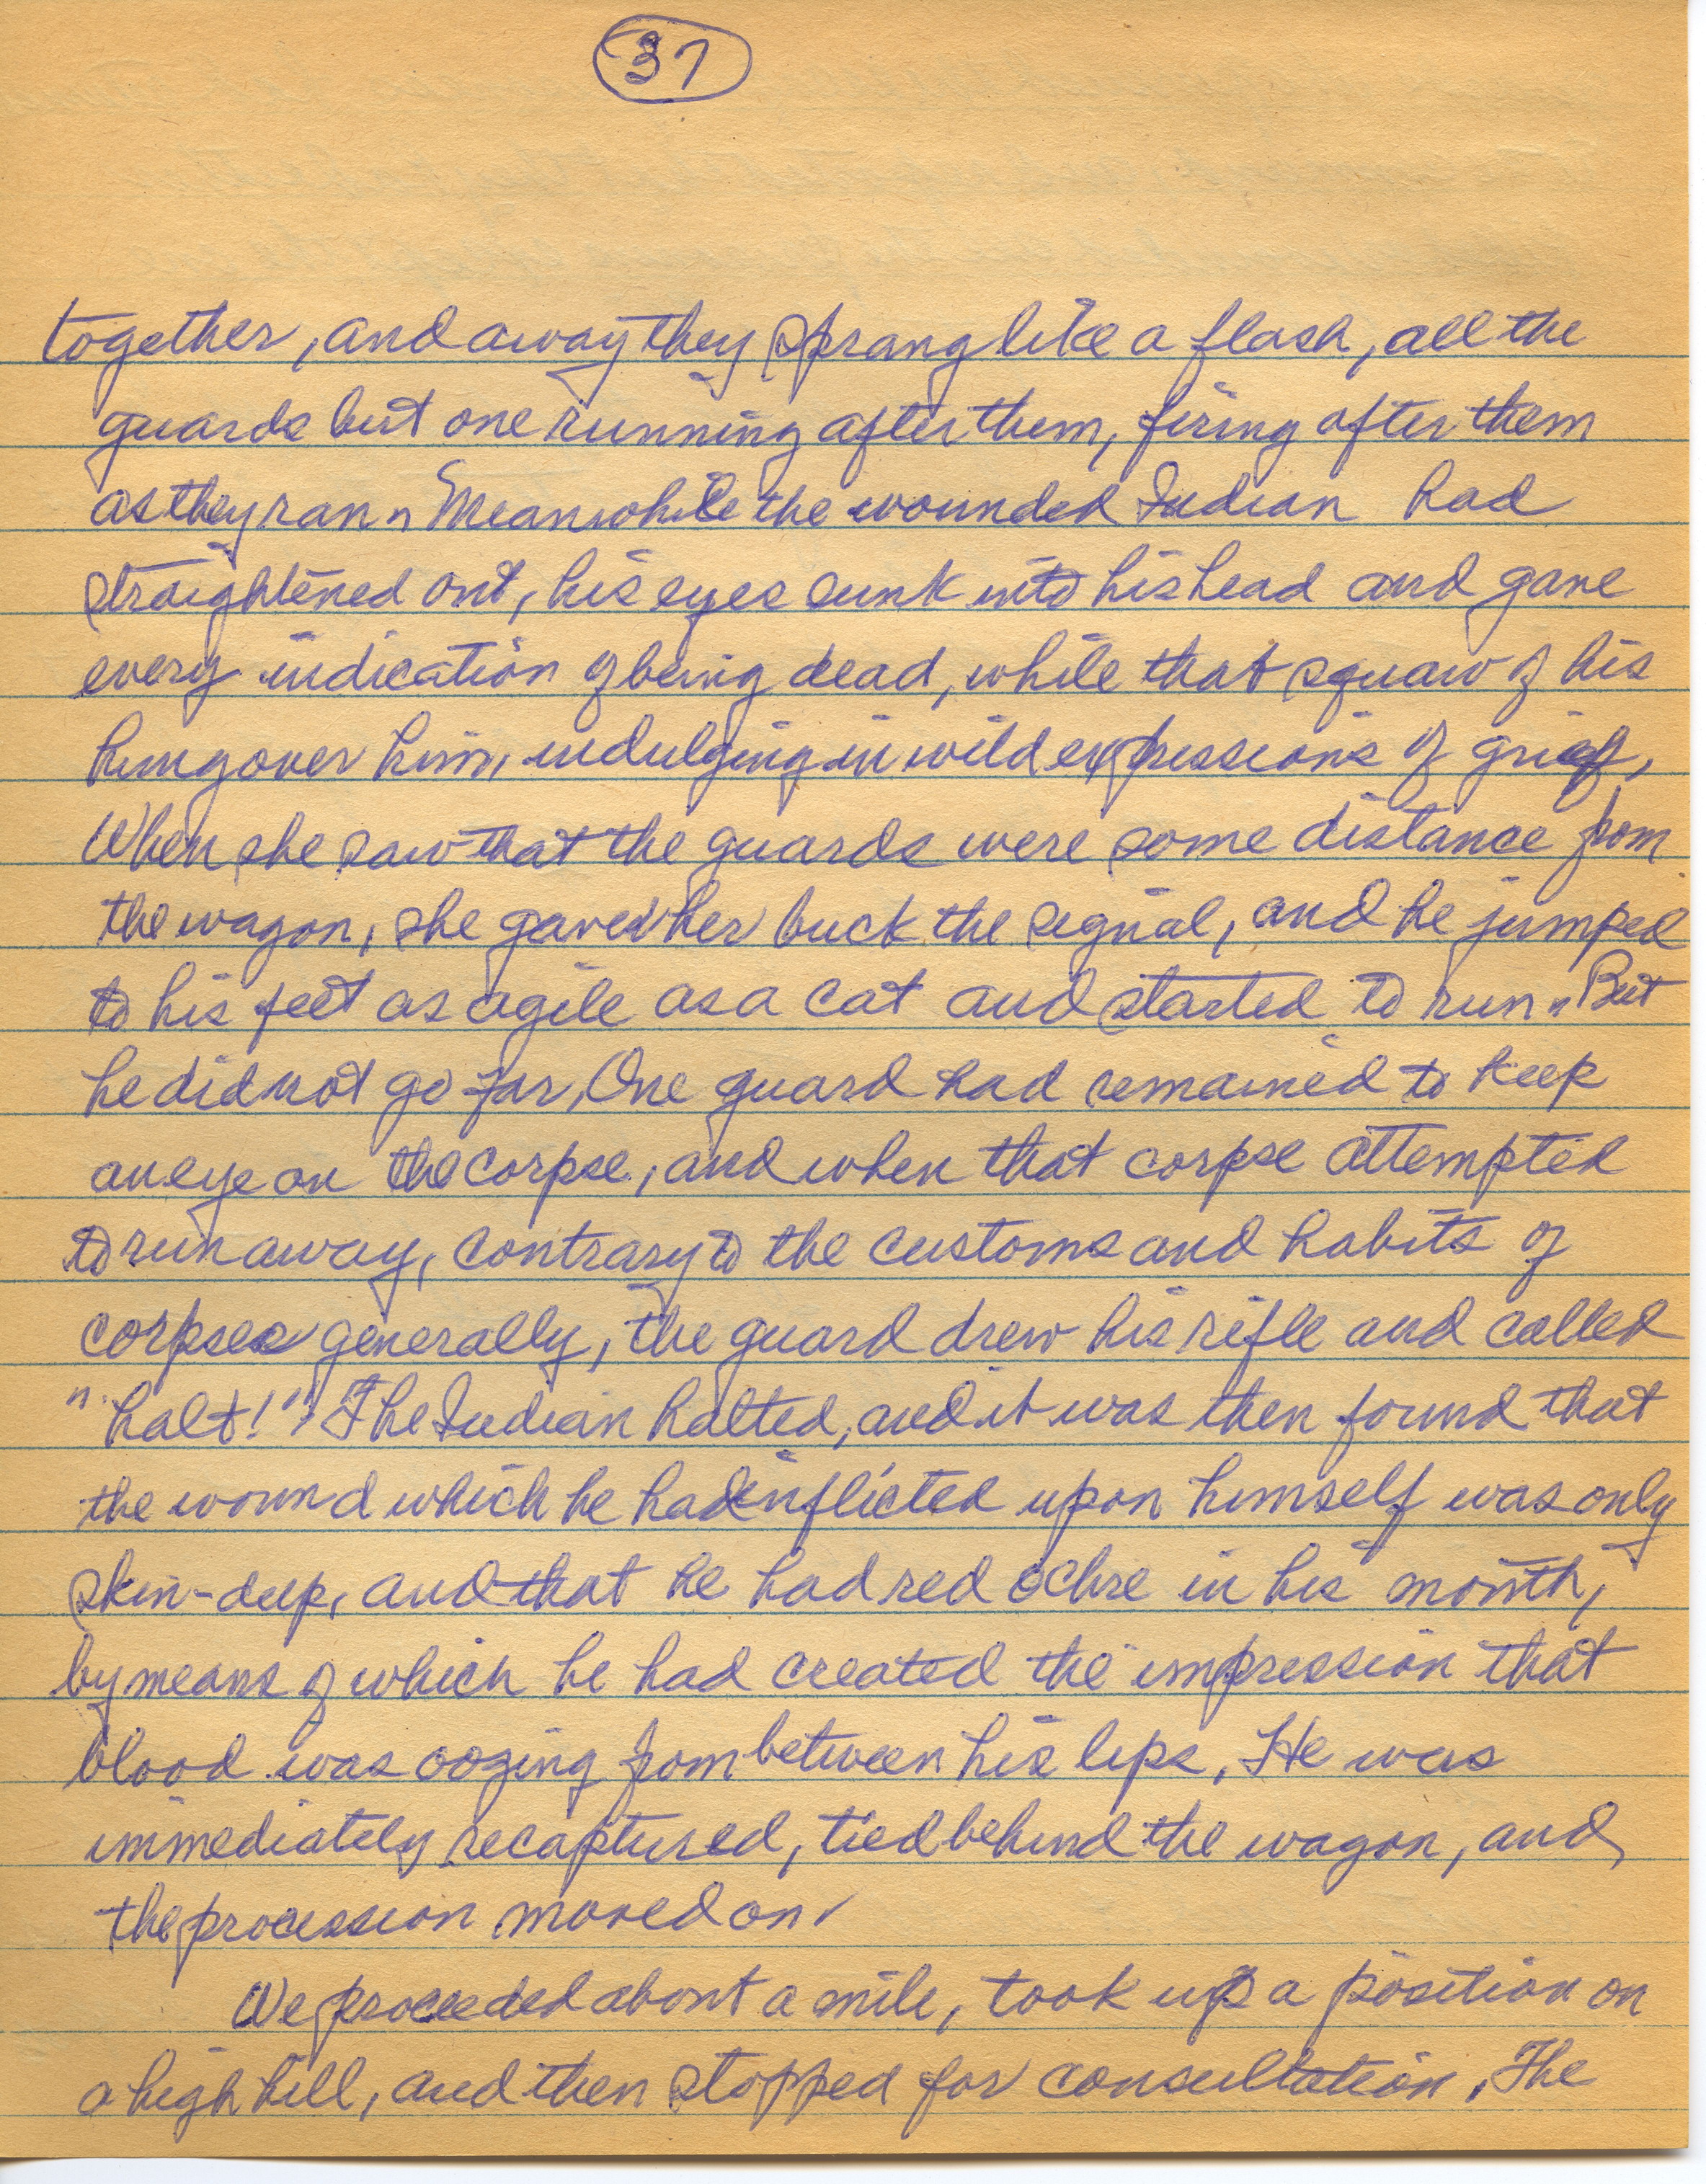 37
together, and away they sprang like a flash, all the
guards but one running after them, firing after them
as they ran. Meanwhile the wounded Indian had
straightened out, his eyes sunk into his head and gave
every indication of being dead, while that squaw of his
hung over him, indulging in wild expressions of grief,
When she saw that the guards were some distance from
the wagon, she gave her buck the signal, and he jumped
to his feet as agile as a cat and started to run. But
he did not go far. One guard had remained to keep
an eye on the corpse, and when that corpse attempted
to run away, contrary to the customs and habits of
corpses generally, the guard drew his rifle and called
"halt!" The Indian halted, and it was then found that
the wound which he had inflicted upon himself was only
skin-deep, and that he had red ochre in his mouth,
by means of which he had created the impression that
blood was oozing from between his lips. He was
immediately recaptured, tied behind the wagon, and
the procession moved on.
We proceeded about a mile, took up a position on
a high hill, and then stopped for consultation. The